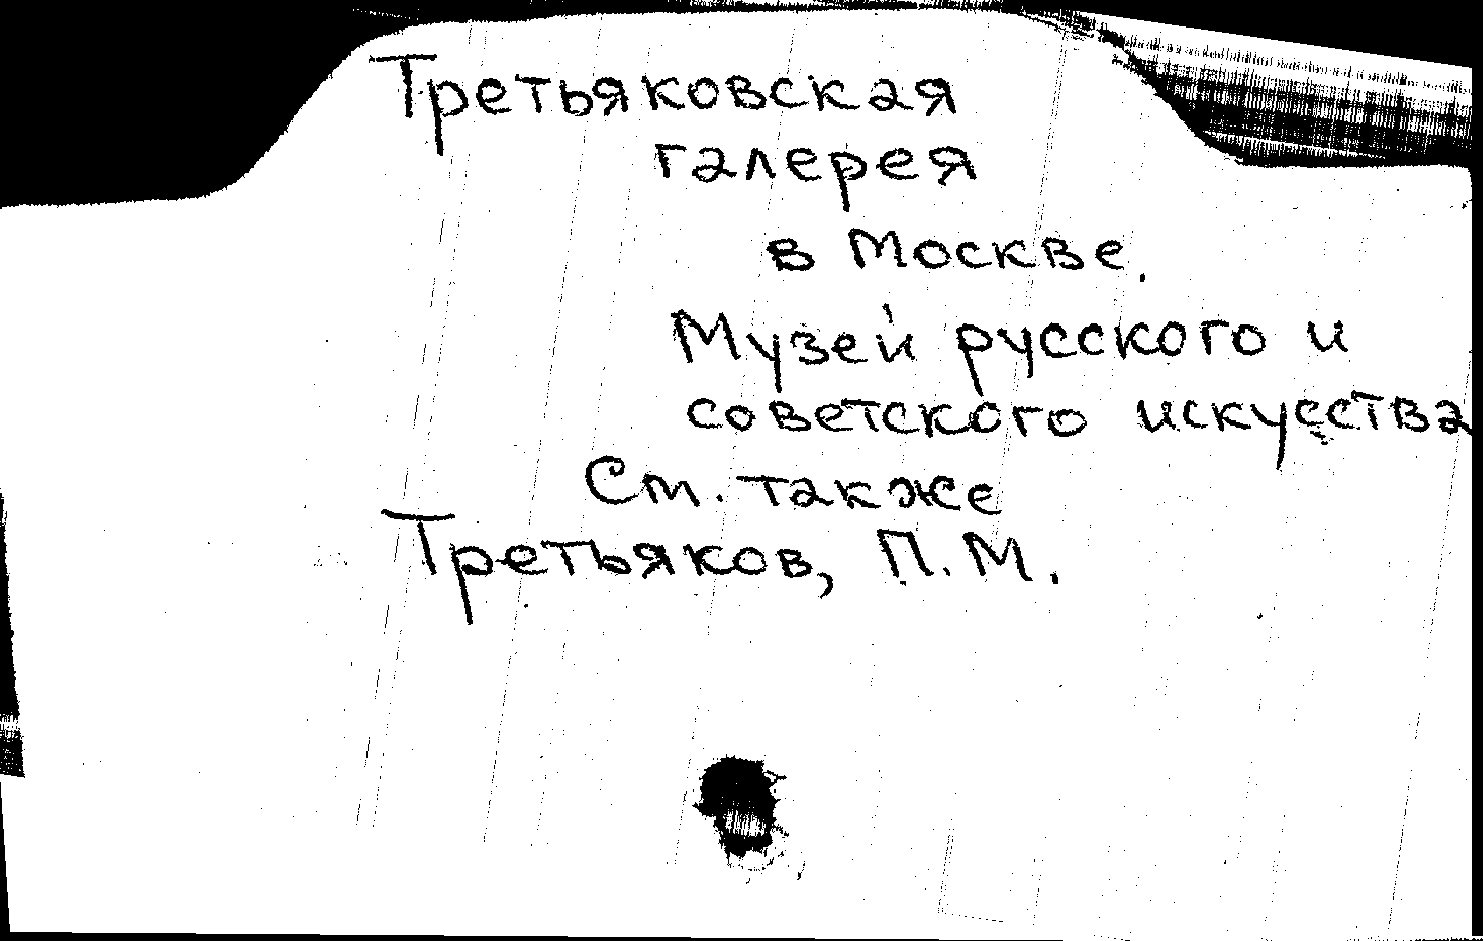 Третьяковская
галерея
в Москве.
Музей русского и
советского искусства
См. также
Третьяков, П.М.